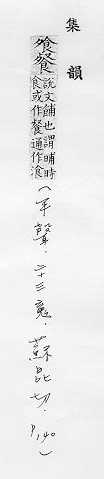 集韻
飱餐說文餔也謂晡時
食或作餐通作湌(平聲.二十三魂.蘇昆切.P.140)